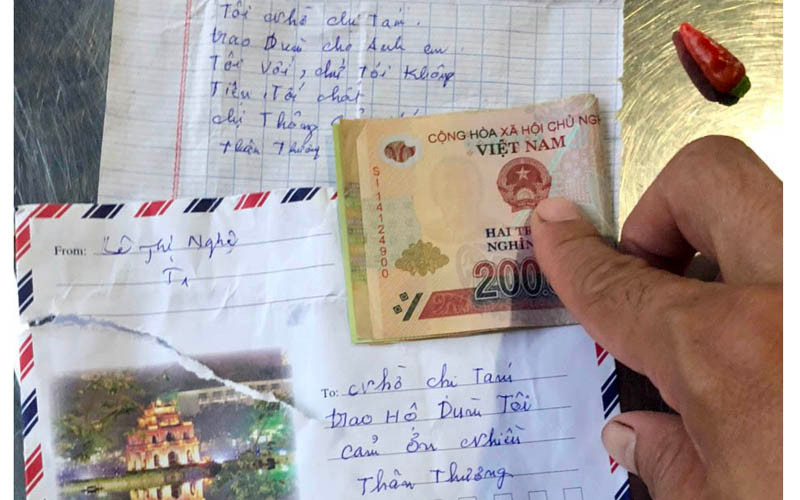 Tôi nhờ chị Tám
trao Dùm cho Anh em
Tôi Với, chứ Tôi Không
Tiền, Tôi chết
chị Thông
Thân Thương
CỘNG HÒA XÃ HỘI CHỦ NGH
VIỆT NAM
SI14124900
HAI TR
NGHÌN
200
From: Lê Thị Nghệ
To: nhờ chị Tám
trao Hộ Dùm Tôi
cảm ơn Nhiều
Thân Thương